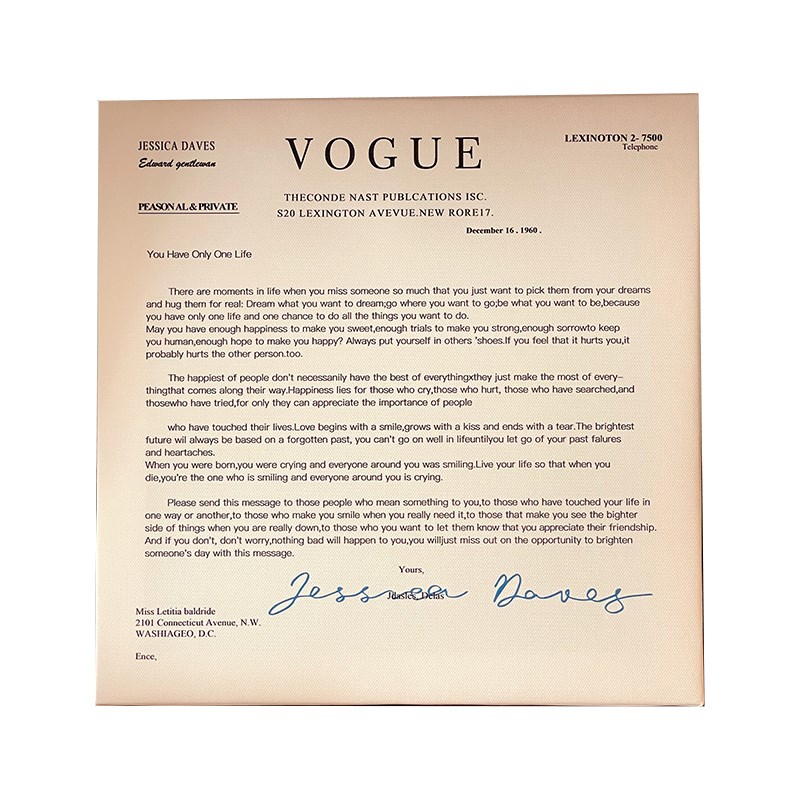 JESSICA DAVES
Edward gentlewan
VOGUE
LEXINOTON 2- 7500
Telephone
PEASONAL & PRIVATE
THECONDE NAST PUBLCATIONS ISC.
S20 LEXINGTON AVEVUE.NEW RORE17.
December 16 . 1960 .
You Have Only One Life
There are moments in life when you miss someone so much that you just want to pick them from your dreams
and hug them for real: Dream what you want to dream;go where you want to go;be what you want to be,because
you have only one life and one chance to do all the things you want to do.
May you have enough happiness to make you sweet,enough trials to make you strong,enough sorrowto keep
you human,enough hope to make you happy? Always put yourself in others 'shoes.If you feel that it hurts you,it
probably hurts the other person.too.
The happiest of people don't necessanily have the best of everythingxthey just make the most of every–
thingthat comes along their way.Happiness lies for those who cry,those who hurt, those who have searched,and
thosewho have tried,for only they can appreciate the importance of people
who have touched their lives.Love begins with a smile,grows with a kiss and ends with a tear.The brightest
future wil always be based on a forgotten past, you can't go on well in lifeuntilyou let go of your past falures
and heartaches.
When you were born,you were crying and everyone around you was smiling.Live your life so that when you
die,you're the one who is smiling and everyone around you is crying.
Please send this message to those people who mean something to you,to those who have touched your life in
one way or another,to those who make you smile when you really need it,to those that make you see the bighter
side of things when you are really down,to those who you want to let them know that you appreciate their friendship.
And if you don't, don't worry,nothing bad will happen to you,you willjust miss out on the opportunity to brighten
someone's day with this message.
Yours,
Jessica Daves
Miss Letitia baldride
2101 Connecticut Avenue, N.W.
WASHIAGEO, D.C.
Ence,